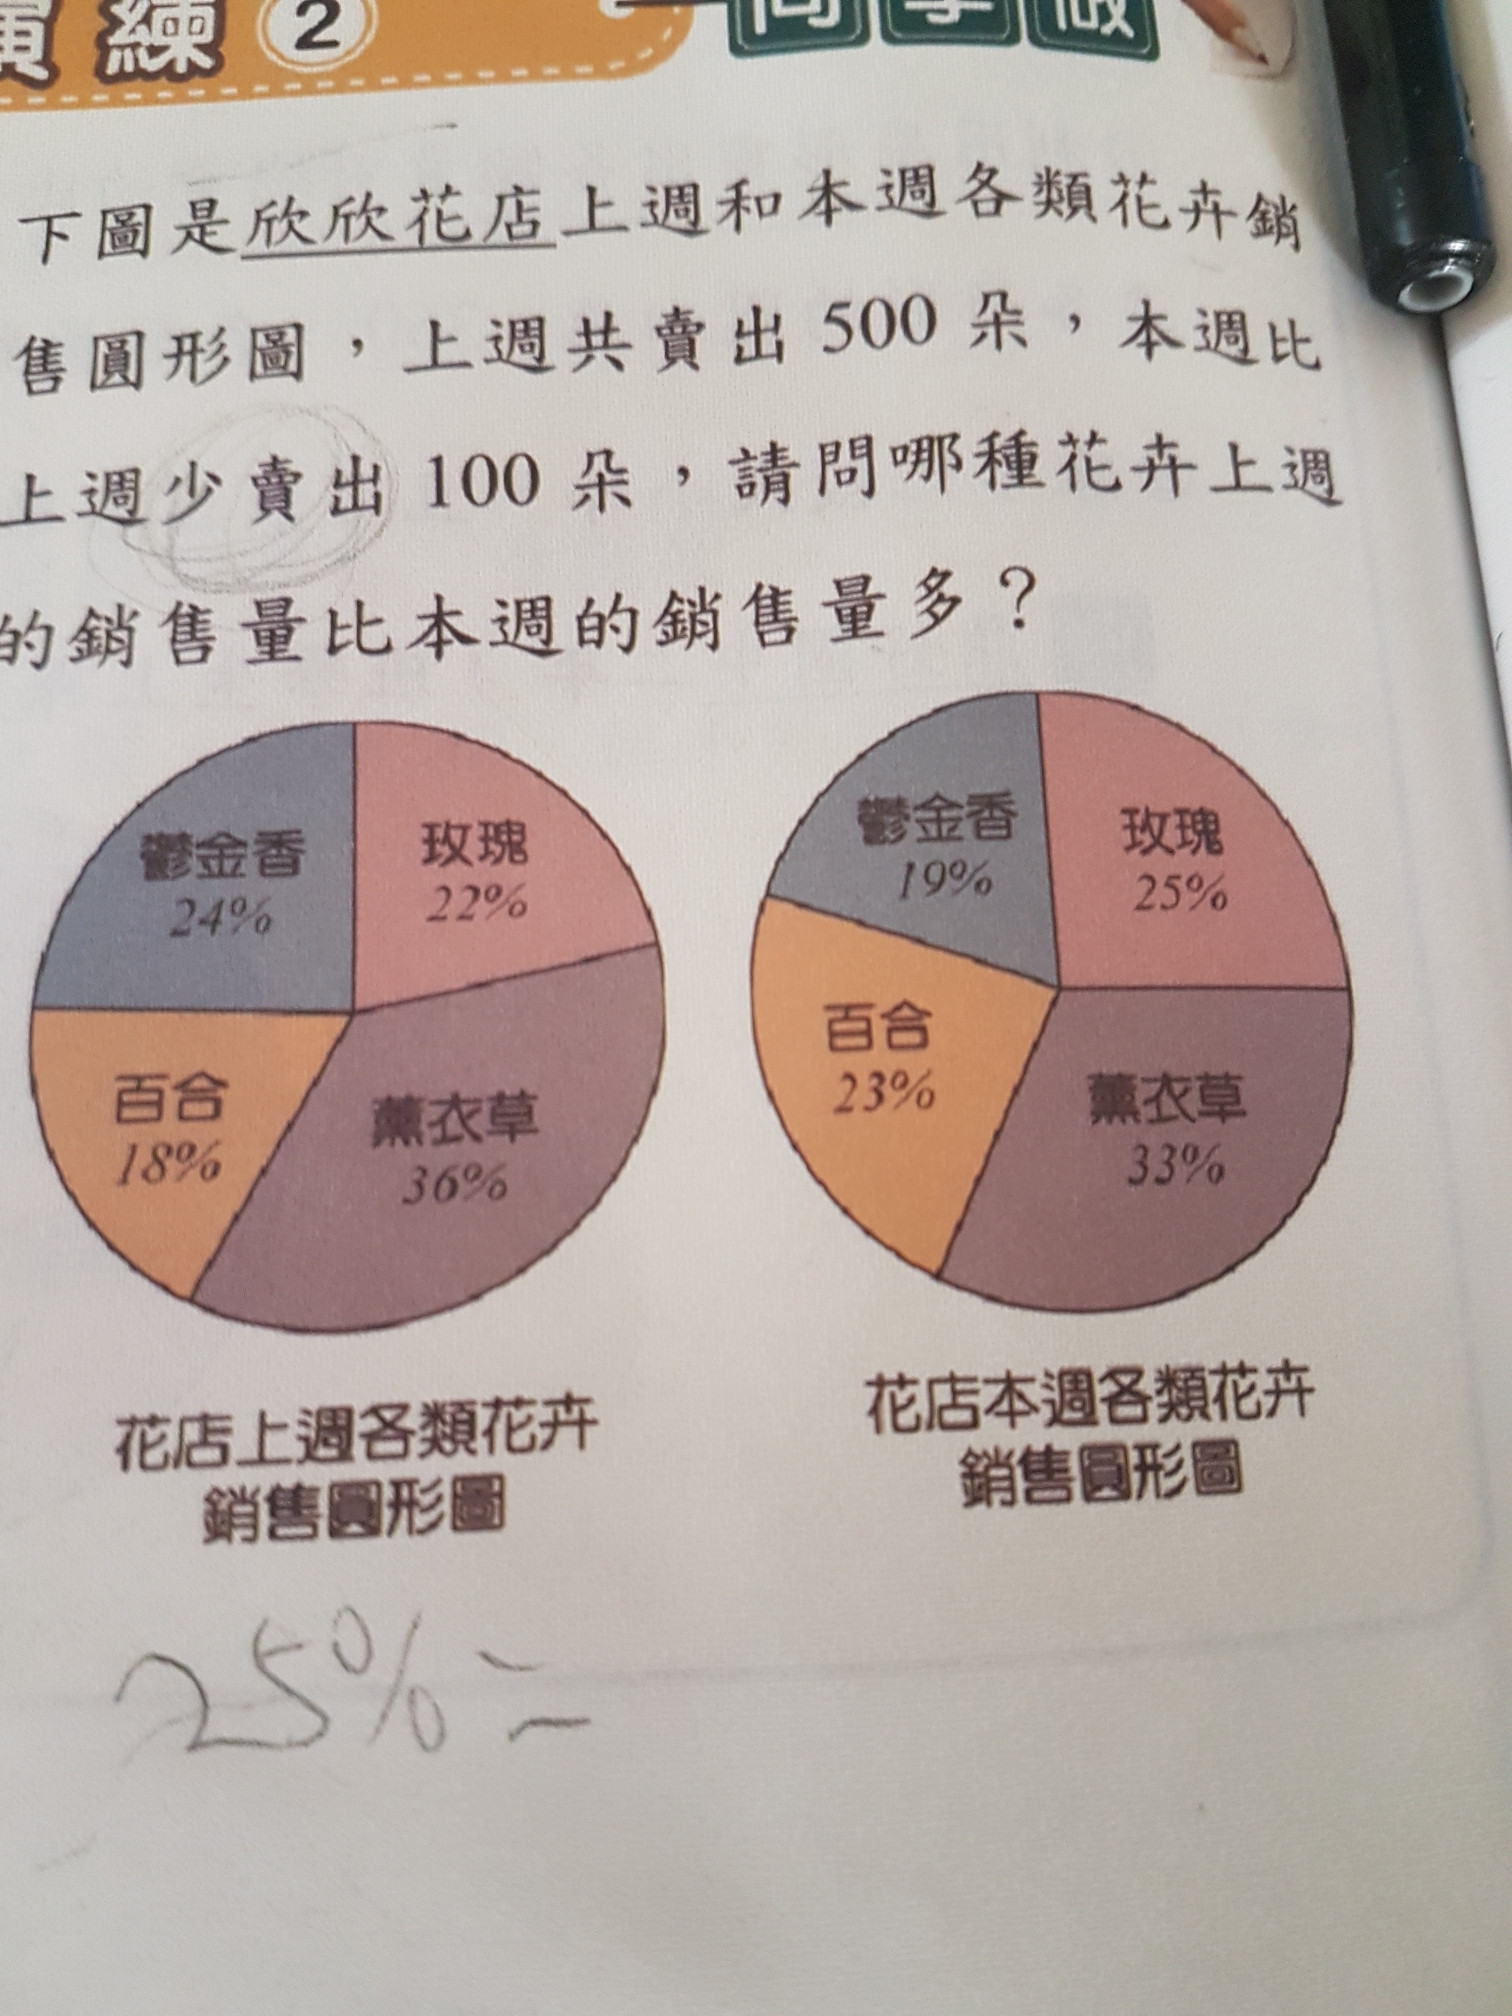 演練②
下圖是欣欣花店上週和本週各類花卉銷
售圓形圖，上週共賣出500朵，本週比
上週少賣出100朵，請問哪種花卉上週
的銷售量比本週的銷售量多？
鬱金香
24%
玫瑰
22%
百合
18%
薰衣草
36%
花店上週各類花卉
銷售圓形圖
鬱金香
19%
玫瑰
25%
百合
23%
薰衣草
33%
花店本週各類花卉
銷售圓形圖
25%=